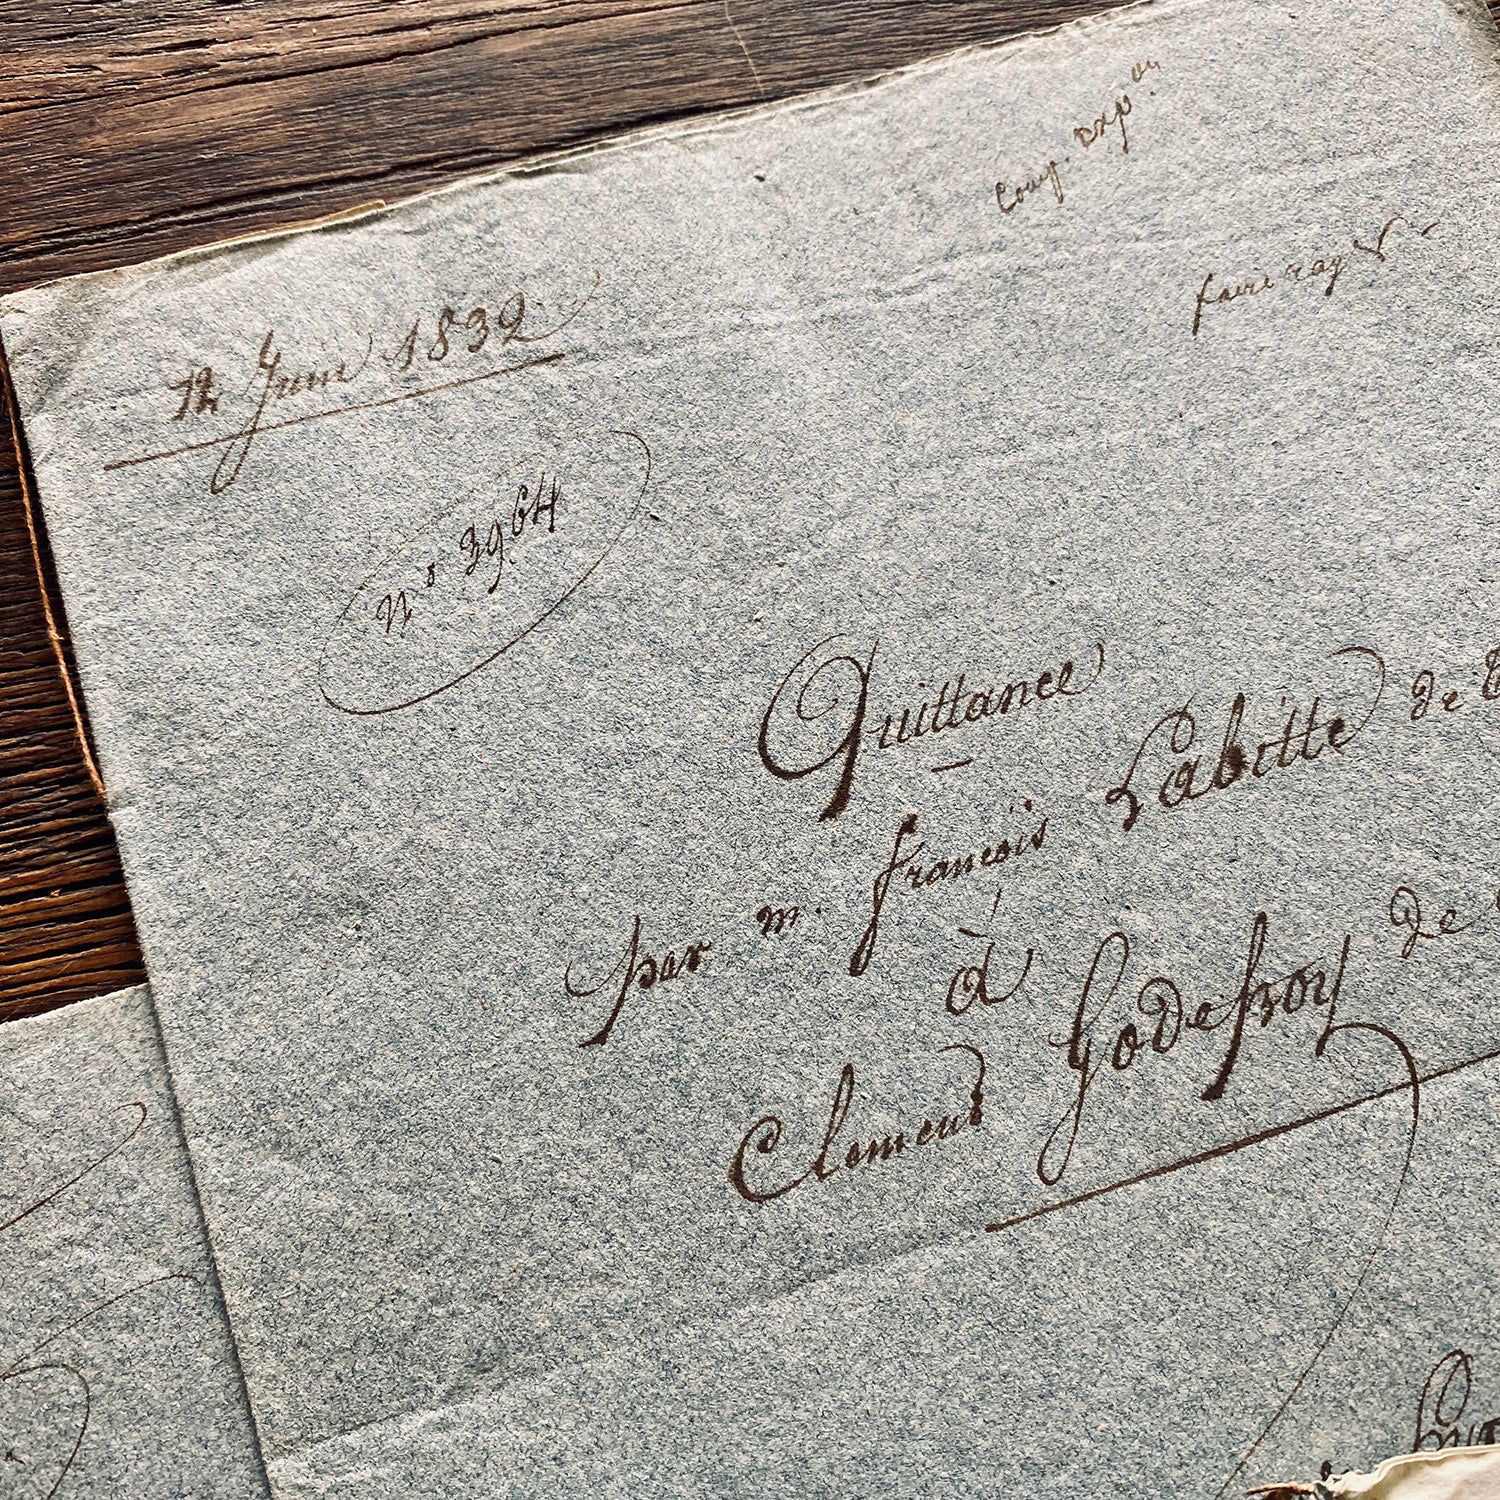 Comp. Exp.on
faire ray
12 Juin 1832
No 3964
Quittance
par m. françois Labitte de
à
Clement Godefroy de